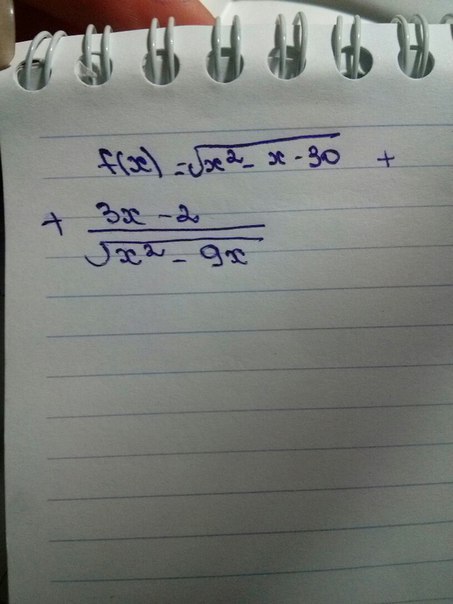 f(x) = √(x² - x - 30) +
+ (3x - 2)/√(x² - 9x)